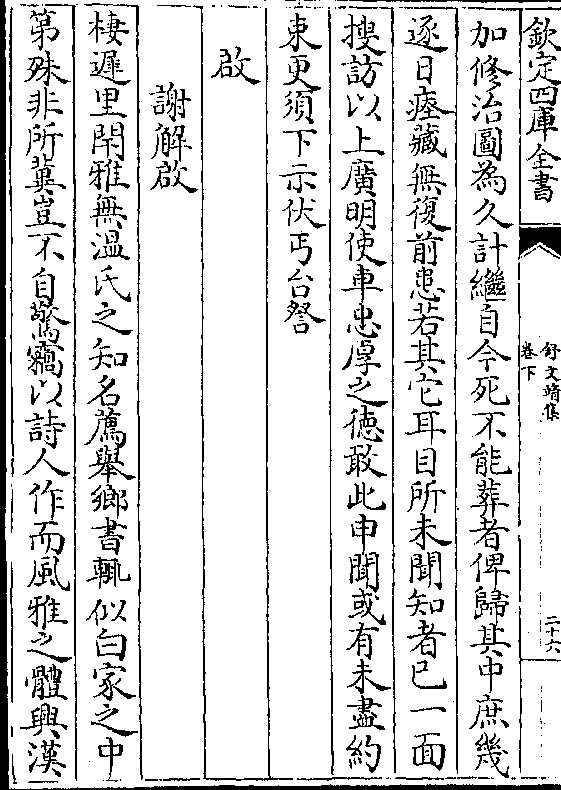 欽定四庫全書
舒文靖集
卷下
二十六
加修治圖為久計繼自今死不能葬者俾歸其中庶幾
逐日瘞藏無復前患若其它耳目所未聞知者已一面
搜訪以上廣明使車忠厚之徳敢此申聞或有未盡約
束更須下示伏丐台詧
啟
謝解啟
棲遲里閈雅無溫氏之知名薦舉鄉書輒似白家之中
第殊非所冀豈不自驚竊以詩人作而風雅之體興漢